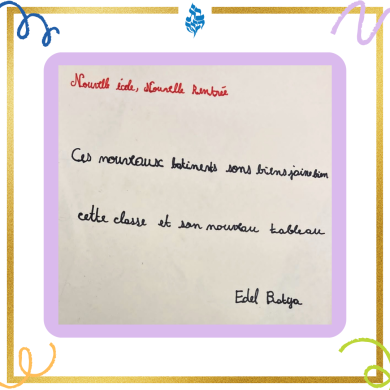 Nouvelle école, Nouvelle Rentrée
Ces nouveaux batiments sons biens jaime bien
cette classe et son nouveau tableau
Edel Batya